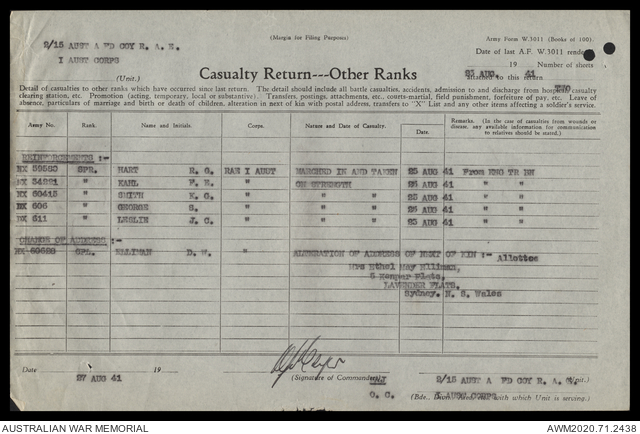 2/15 AUST A FD COY R. A. E.
I AUST CORPS
(Unit.)
(Margin for Filing Purposes)
Army Form W.3011 (Books of 100).
Date of last A.F. W.3011 rendered
23 AUG. 19 41 Number of sheets
attached to this return
TWO
Casualty Return---Other Ranks
Detail of casualties to other ranks which have occurred since last return. The detail should include all battle casualties, accidents, admission to and discharge from hospital casualty
clearing station, etc. Promotion (acting, temporary, local or substantive). Transfers, postings, attachments, etc., courts-martial, field punishment, forfeiture of pay, etc. Leave of
absence, particulars of marriage and birth or death of children, alteration in next of kin with postal address, transfers to "X" List and any other items affecting a soldier's service.
Army No. Rank. Name and Initials. Corps. Nature and Date of Casualty. Date. Remarks. (In the case of casualties from wounds or disease, any available information for communication to relatives should be stated.)
REINFORCEMENTS :-
NX 59583 SPR. HART R. G. RAE I AUST MARCHED IN AND TAKEN 25 AUG 41 From ENG TR BN
NX 34221 " EARL F. E. " ON STRENGTH 25 AUG 41 " "
NX 60415 " SMITH K. G. " " " 25 AUG 41 " "
NX 606 " GEORGE S. " " " 25 AUG 41 " "
NX 611 " LESLIE J. C. " " " 25 AUG 41 " "
CHANGE OF ADDRESS :-
NX 60628 SPR. ELLIMAN D. W. " ALTERATION OF ADDRESS OF NEXT OF KIN :- Allottee
Mrs Ethel May Elliman,
5 Flats,
LAVENDER FLATS,
Sydney. N. S. Wales
Date 27 AUG 41 19
(Signature of Commander)
MAJ
O. C.
2/15 AUST A FD COY R. A. E. (Unit.)
I AUST CORPS
(Bde., Divn., Area with which Unit is serving.)
AUSTRALIAN WAR MEMORIAL
AWM2020.71.2438